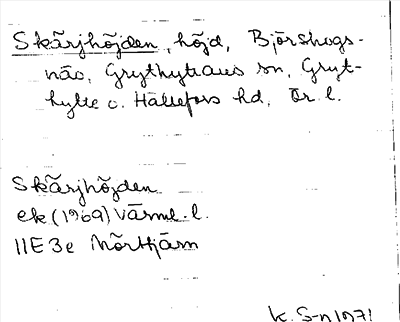 Skärjhöjden, höjd, Björskogs-
näs, Grythyttans sn, Gryt-
hytte o. Hällefors hd, Ör l.
Skärjhöjden
ek (1969) Värml. l.
11E 3e Mörttjärn
K. S-n 1971